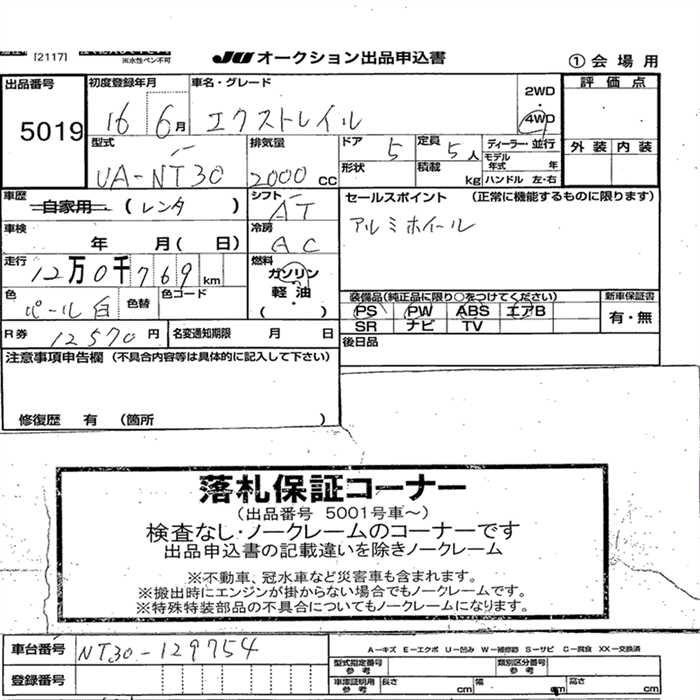 [2117]
※水性ペン不可
JU オークション出品申込書
①会場用
出品番号 初度登録年月 車名・グレード 2WD・4WD 評価点
5019 16 6月 エクストレイル
外装 内装
型式 排気量 ドア 定員 ディーラー・並行
UA-NT30 2000cc 5 5人 モデル年式 年
形状 積載 kg ハンドル 左・右
車歴 シフト セールスポイント (正常に機能するものに限ります)
自家用 (レンタ) AT アルミホイール
車検 冷房
年 月( 日) AC
走行 燃料
12万0千769km ガソリン
軽・油
( )
色 色替 色コード
パール白
装備品(純正品に限り○をつけてください) 新車保証書
PS PW ABS エアB 有・無
SR ナビ TV
R券 12570円 名変通知期限 月 日
後日品
注意事項申告欄 (不具合内容等は具体的に記入して下さい)
修復歴 有 (箇所 )
落札保証コーナー
(出品番号 5001号車~)
検査なし・ノークレームのコーナーです
出品申込書の記載違いを除きノークレーム
※不動車、冠水車など災害車も含まれます。
※搬出時にエンジンが掛からない場合でもノークレームです。
※特殊特装部品の不具合についてもノークレームになります。
車台番号 NT30-129754
A-キズ E-エクボ U-凹み W-補修跡 S-サビ C-腐食 XX-交換済
型式指定番号 参考 類別区分番号 参考
登録番号 車検証明用 参考 長さ cm 幅 cm 高さ cm